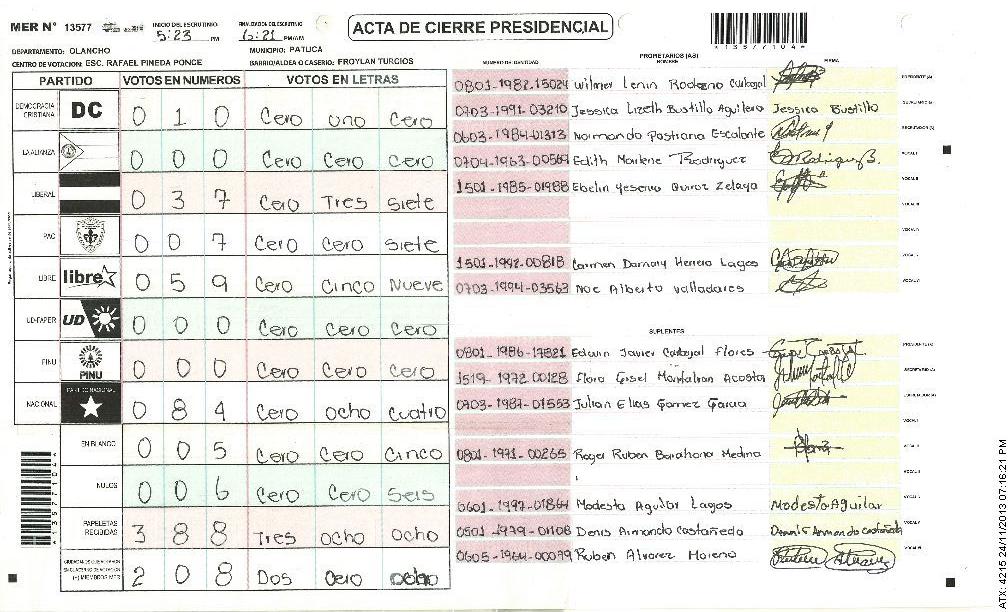 MER N° 13577
INICIO DEL ESCRUTINIO
5:23 PM
FINALIZACION DEL ESCRUTINIO
6:21 PM/AM
ACTA DE CIERRE PRESIDENCIAL
*13577104*
DEPARTAMENTO: OLANCHO
MUNICIPIO: PATUCA
CENTRO DE VOTACION: ESC. RAFAEL PINEDA PONCE
BARRIO/ALDEA O CASERIO: FROYLAN TURCIOS
PARTIDO VOTOS EN NUMEROS VOTOS EN LETRAS
DEMOCRACIA CRISTIANA DC 0 1 0 Cero uno Cero
LA ALIANZA 0 0 0 Cero Cero Cero
LIBERAL 0 3 7 Cero Tres Siete
PAC 0 0 7 Cero Cero Siete
LIBRE libre 0 5 9 Cero Cinco Nueve
UD-FAPER UD 0 0 0 Cero Cero Cero
PINU PINU 0 0 0 Cero Cero Cero
NACIONAL PARTIDO NACIONAL 0 8 4 Cero Ocho Cuatro
EN BLANCO 0 0 5 Cero Cero Cinco
NULOS 0 0 6 Cero Cero Seis
PAPELETAS RECIBIDAS 3 8 8 Tres Ocho Ocho
(+) MIEMBROS MER 2 0 8 Dos Cero Ocho
NUMERO DE IDENTIDAD
PROPIETARIOS (AS)
NOMBRE
FIRMA
0801-1982-15024 Wilmer Lenin Rodezno Carbajal PRESIDENTE (A)
0703-1991-03210 Jessica Lizeth Bustillo Aguilera Jessica Bustillo
0603-1984-01313 Normando Pastrana Escalante
0704-1963-00569 Edith Marlene Rodriguez
1501-1985-01988 Ebelin Yesenia Quiroz Zelaya
1501-1992-00818 Carmen Damary Herrera Lagos
0703-1994-03563 Noe Alberto Valladares
SUPLENTES
0801-1986-17821 Edwin Javier Carbajal Flores
1519-1972-00128 Flora Gisel Montalvan Acosta
0703-1987-01553 Julian Elias Gomez Garcia
0801-1971-00265 Roger Ruben Barahona Medina
0601-1997-01864 Modesta Aguilar Lagos Modesta Aguilar
0501-1979-01108 Denis Armando Castañeda Denis Armando Castañeda
0605-1964-00099 Ruben Alvarez Moreno
*13577104*
ATX: 4215 24/11/2013 07:16:21 PM